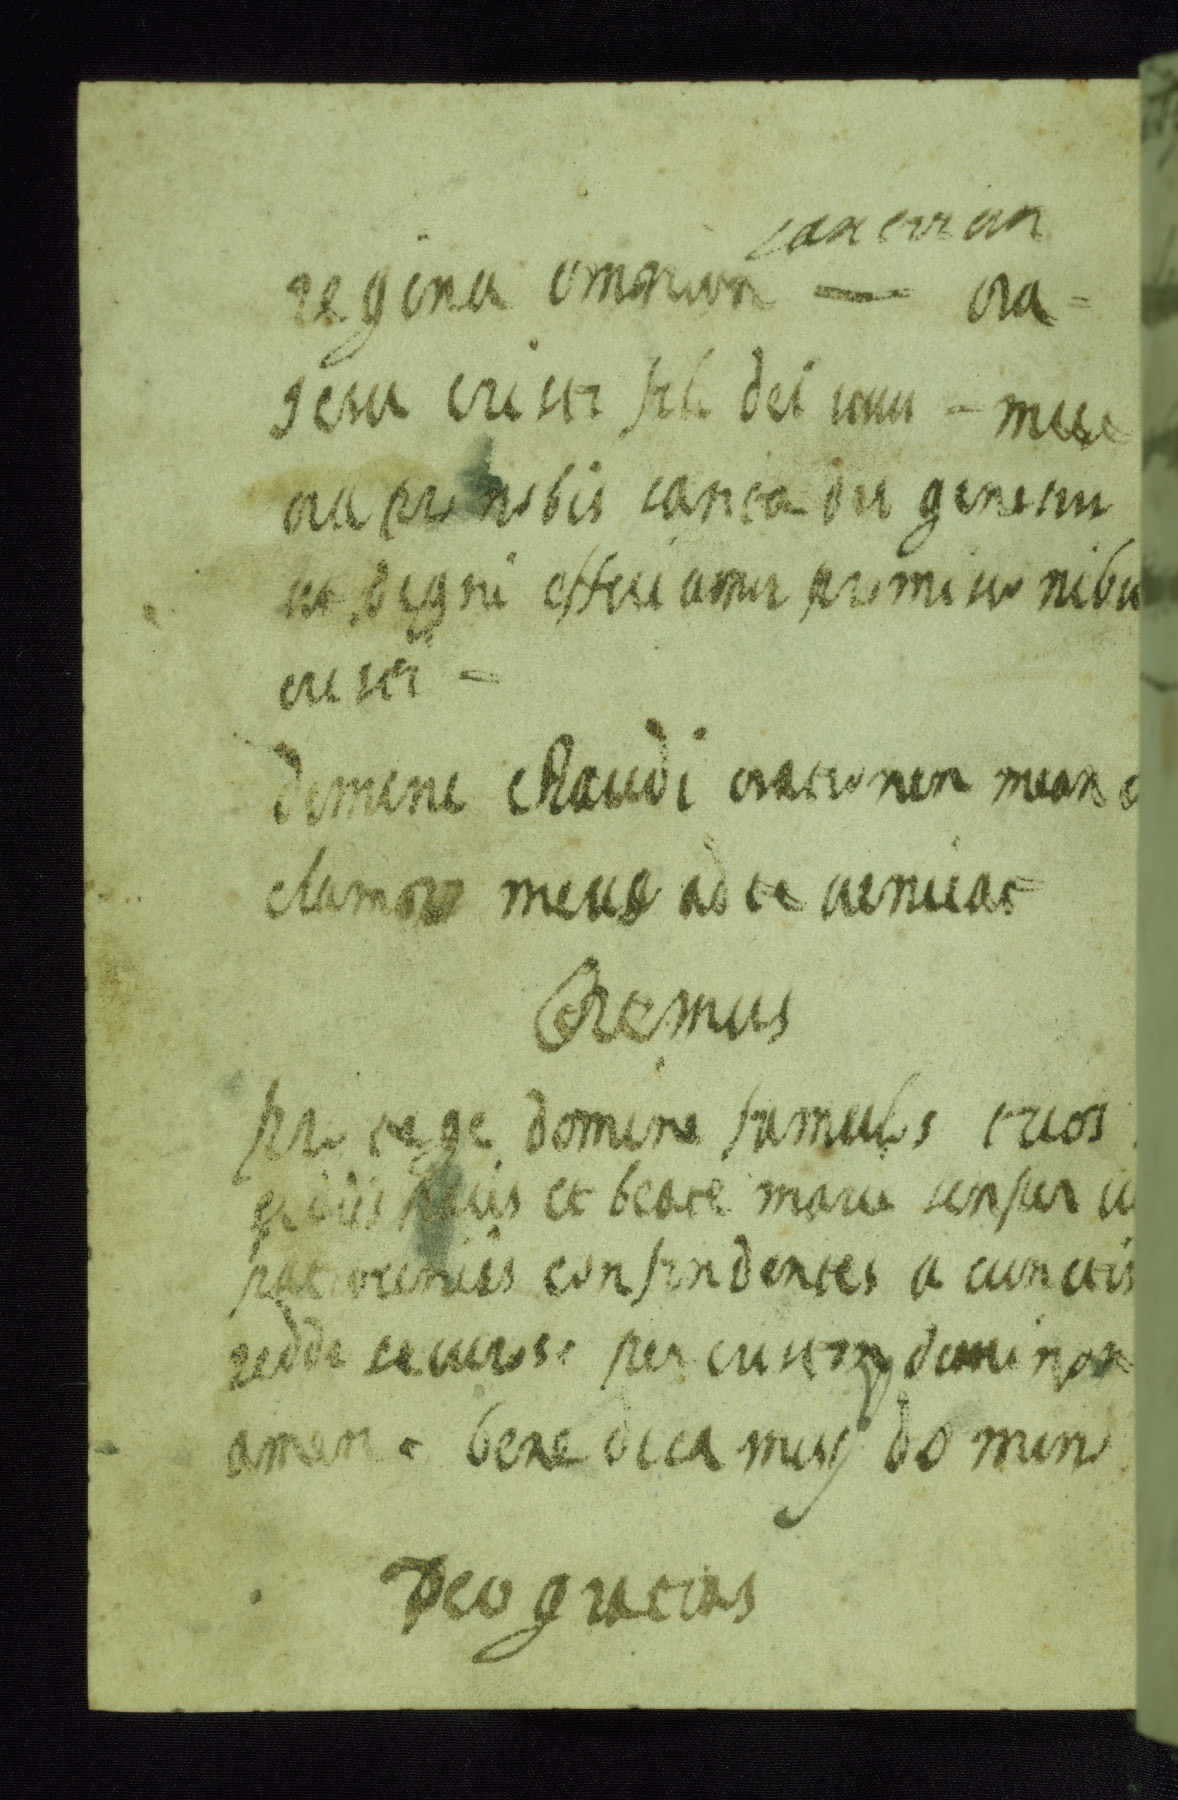 sanctorum
regina omnium — ora -
Jesu criste fili dei vivi - mise
ora pro nobis sancta dei genetris
ut digni efficiamur promisionibu
cristi -
domine exaudi orationem meam e
clamor meus ad te veniat
Oremus
protege domine famulos tuos
et beate marie semper vi
patrociniis confindentes a cunctis
redde securos per cristum dominom
amen . benedicamus domino
Deo gratias